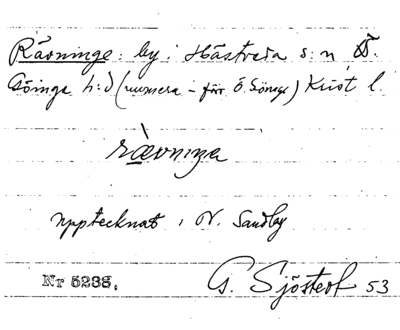 Rävninge: by i Hästveda s:n, Ö.
Göinge h:d (numera - förr Ö. Göinge) Krist l.
rævninga
upptecknat i N. Sandby
Nr 5238.
G. Sjöstedt 53